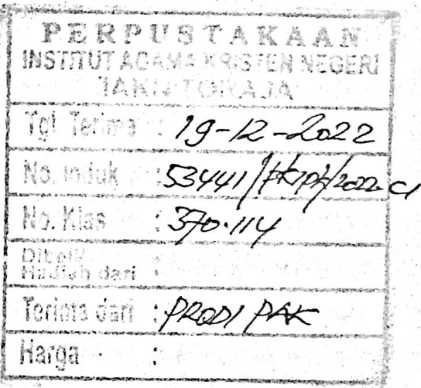 PERPUSTAKAAN
INSTITUT AGAMA KRISTEN NEGERI
IAKN TORAJA
Tgl Terima : 19-12-2022
No. Induk : 53441/ /2022 C1
No. Klas : 370.114
Dibeli/
Hadiah dari :
Terima dari : PRODI PAK
Harga :